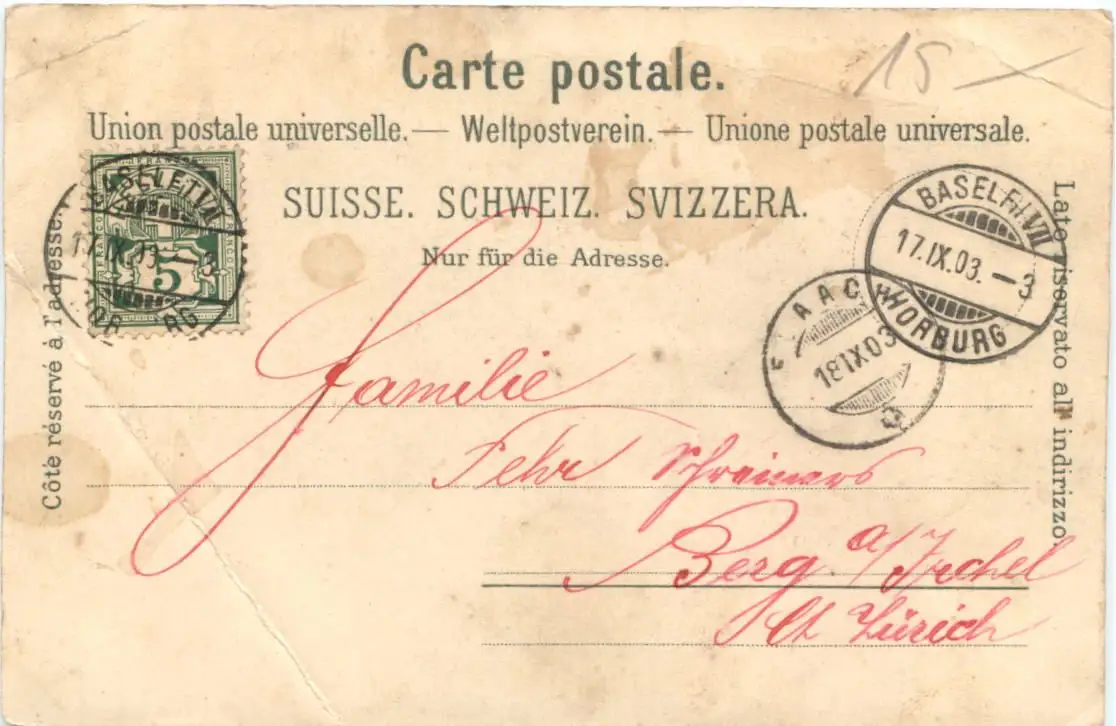 15 -
Carte postale.
Union postale universelle.— Weltpostverein.— Unione postale universale.
SUISSE. SCHWEIZ. SVIZZERA.
Nur für die Adresse.
Côté réservé à l'adresse.
Lato riservato all' indirizzo.
FRANCO
17.IX.03.
5
BASEL
17.IX.03. -3
HORBURG
FLAACH
18 IX 03
Familie
Fehr Schreiners
Berg a/Irchel
Ct. Zürich